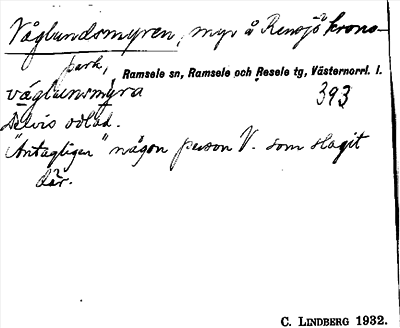 Våglundsmyren, myr å Rensjö krono-
park,
Ramsele sn, Ramsele och Resele tg, Västernorrl. l.
393
Delvis odlad.
"Antagligen" någon person V. som slagit
där.
C. LINDBERG 1932.